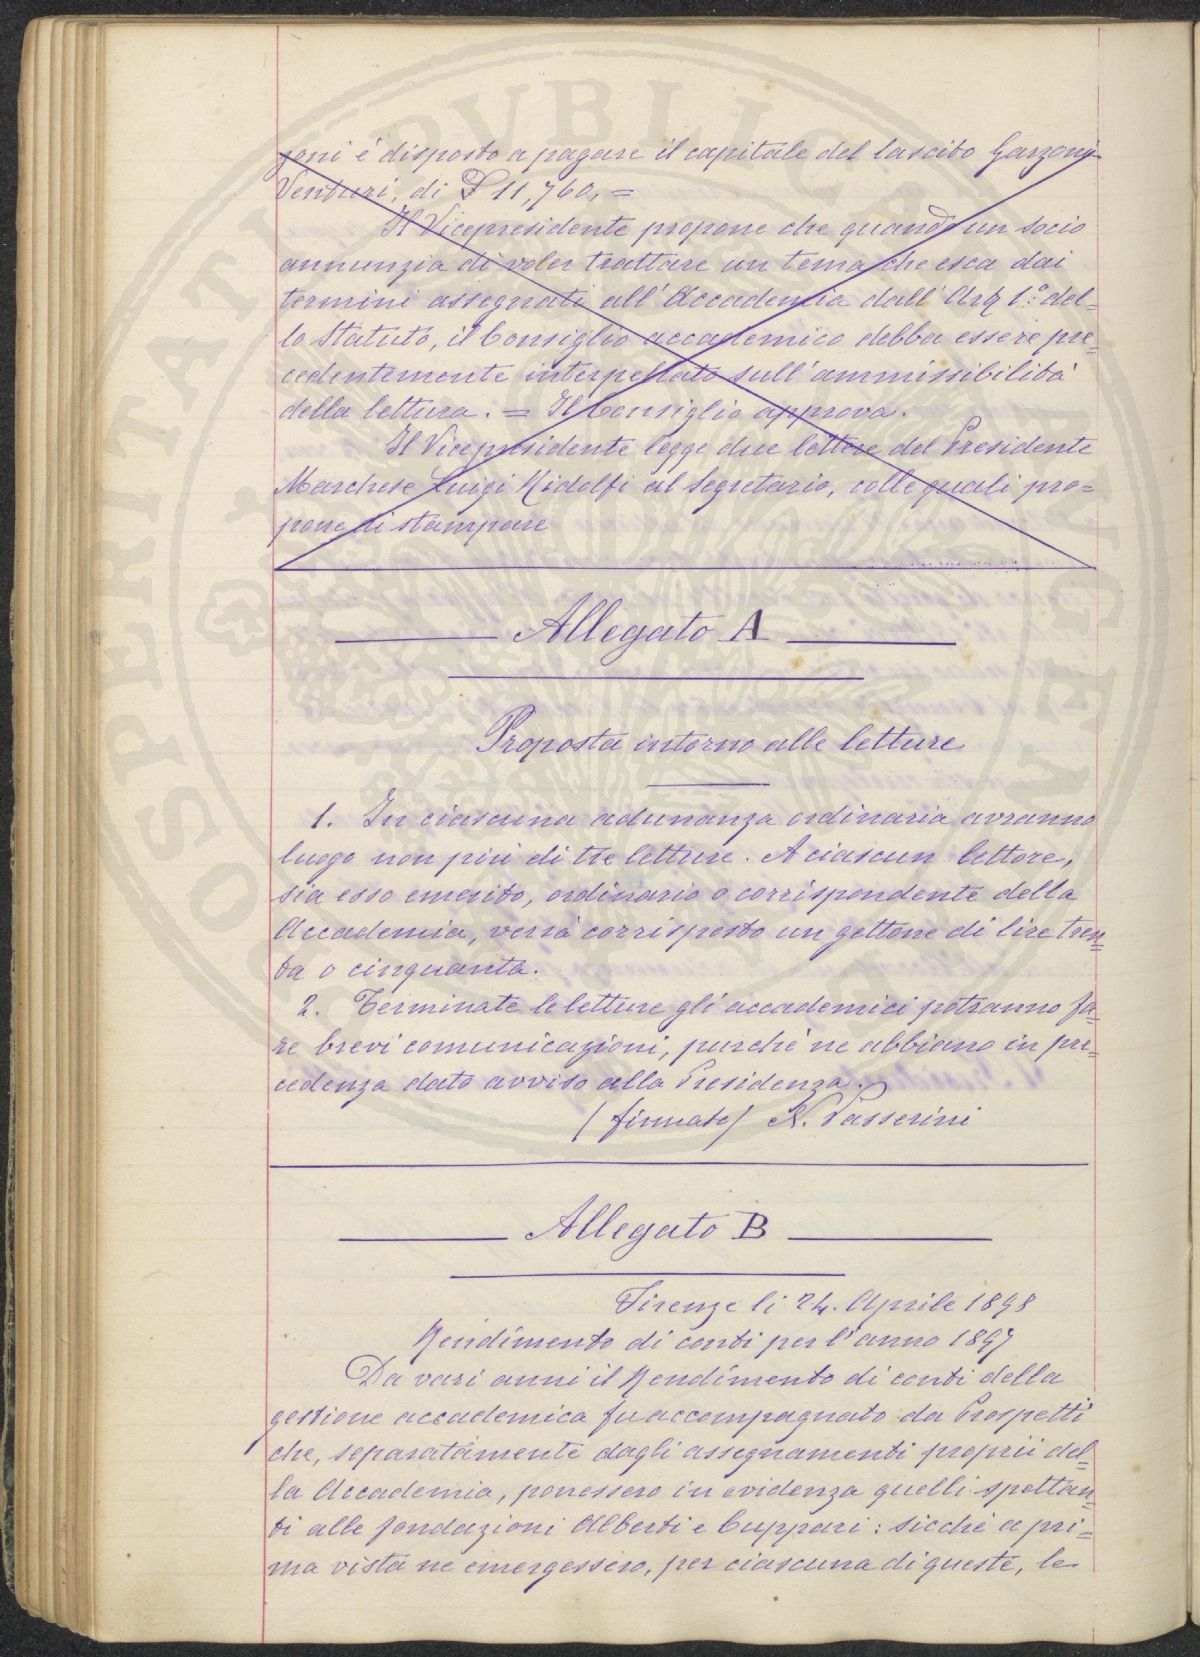 zoni é disposto a pagare il capitale del lascito Garzoni
Venturi, di £ 11,760.=
Il Vicepresidente propone che quando un socio
annunzia di voler trattare un tema che esca dai
termini assegnati all'Accademia dall'Art 1.º del-
lo Statuto, il Consiglio accademico debba essere pre=
cedentemente interpellato sull'ammissibilità
della lettura. = Il Consiglio approva.
Il Vicepresidente legge due lettere del Presidente
Marchese Luigi Ridolfi al Segretario, colle quali pro=
pone di stampare
Allegato A
Proposta intorno alle letture
1. In ciascuna adunanza ordinaria avranno
luogo non più di tre letture. A ciascun lettore,
sia esso emerito, ordinario o corrispondente della
Accademia, verrà corrisposto un gettone di lire tren=
ta o cinquanta.
2. Terminate le letture gli accademici potranno fa=
re brevi comunicazioni, purché ne abbiano in pre=
cedenza dato avviso alla Presidenza.
(firmato) N. Passerini
Allegato B
Firenze li 24. Aprile 1898
Rendimento di conti per l'anno 1897
Da vari anni il Rendimento di conti della
gestione accademica fu accompagnato da Prospetti
che, separatamente dagli assegnamenti proprii del=
la Accademia, ponessero in evidenza quelli spettan=
ti alle fondazioni Alberti e Cuppari: sicché a pri=
ma vista ne emergessero, per ciascuna di queste, le